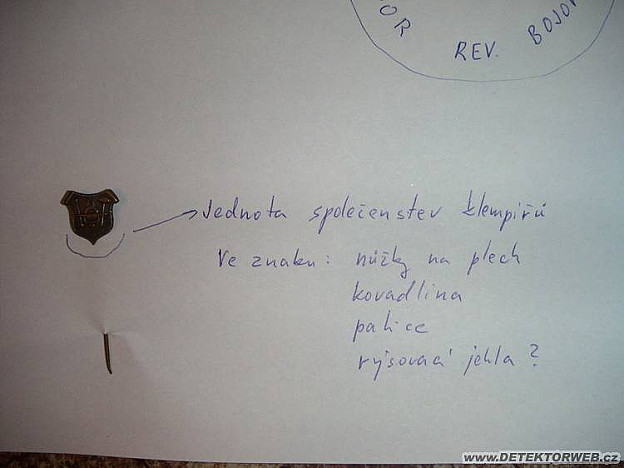 OR REV. BOJOV
Jednota společenstev klempířů
Ve znaku: nůžky na plech
kovadlina
palice
rýsovací jehla?
www.DETEKTORWEB.cz